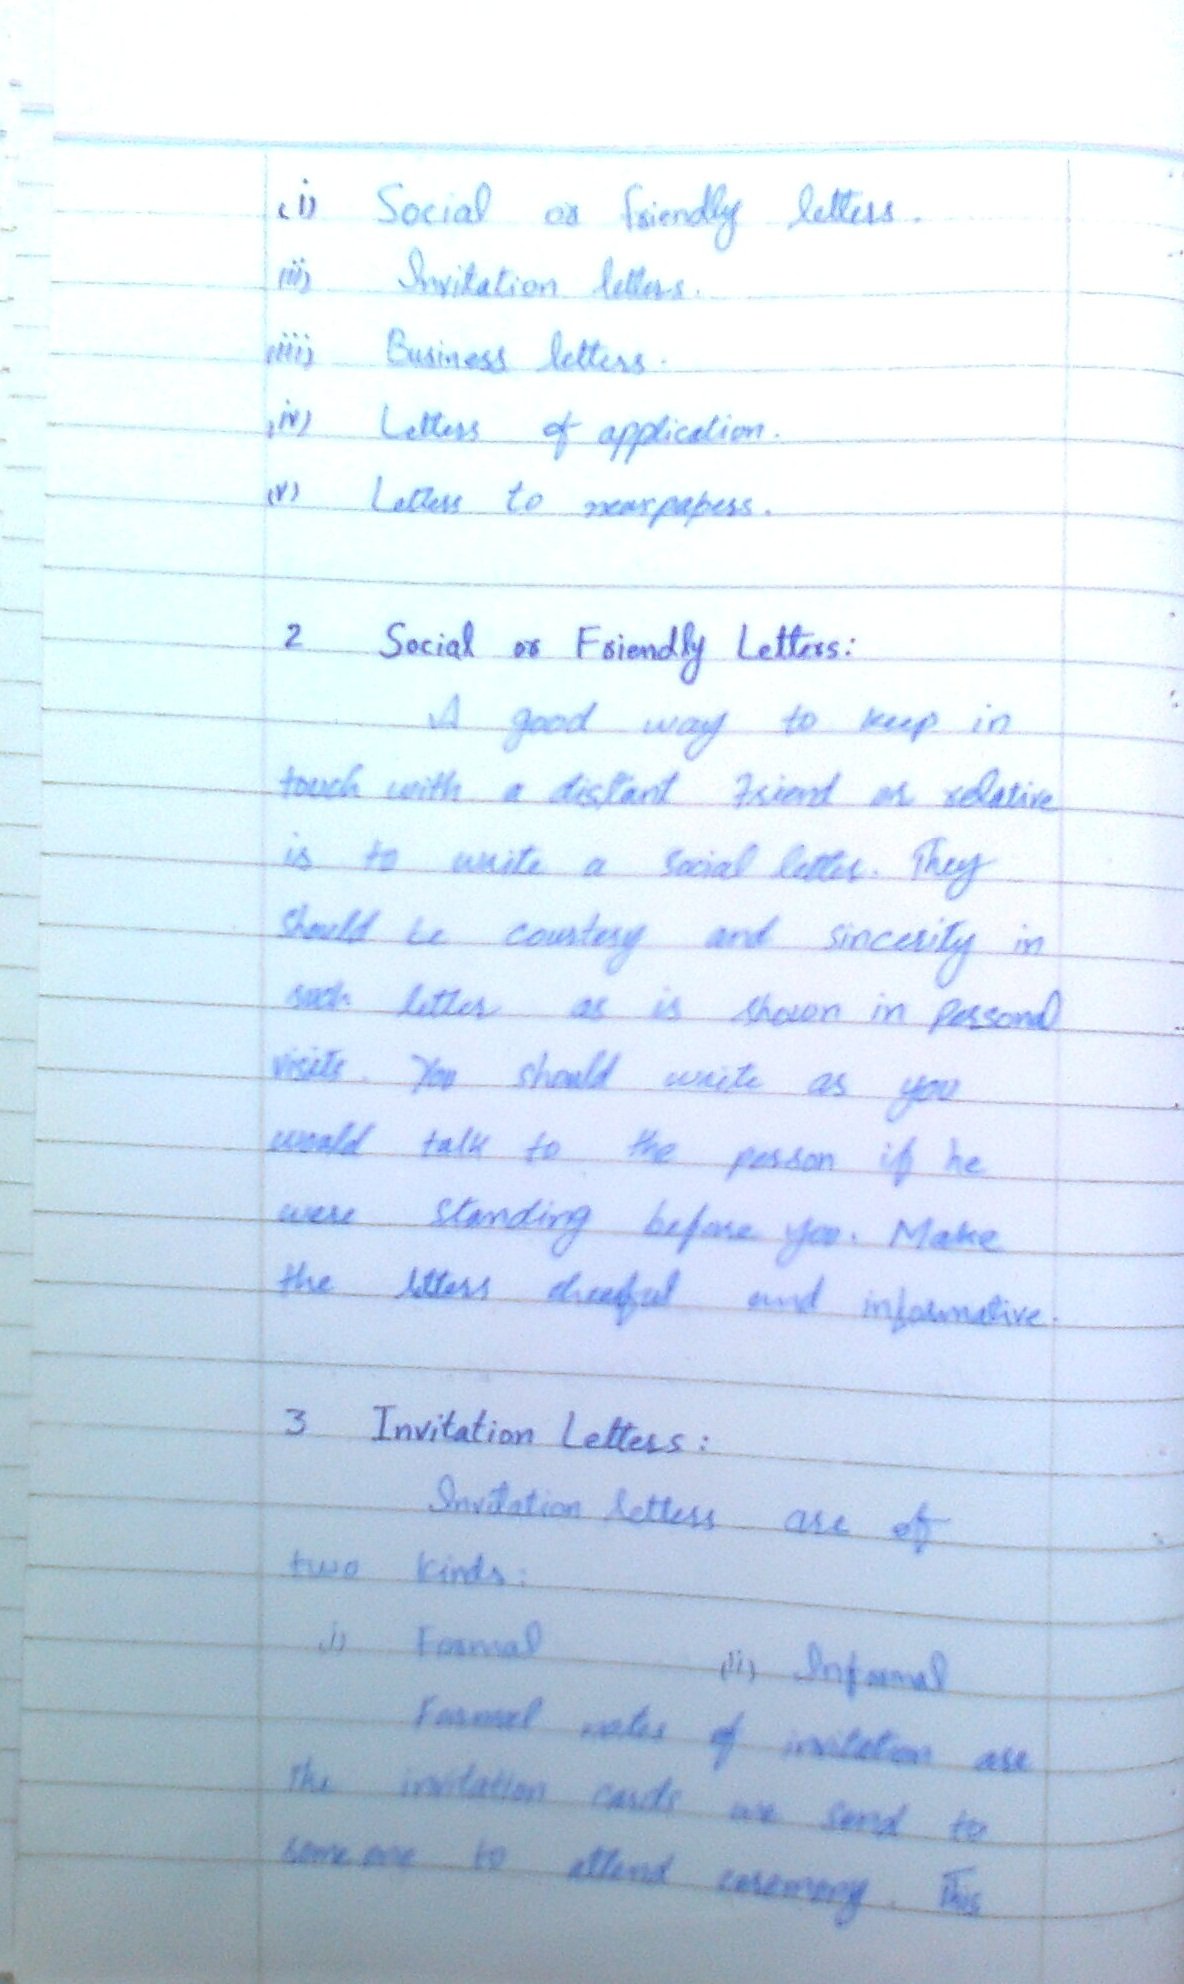 (i) Social or friendly letters.
(ii) Invitation letters.
(iii) Business letters.
(iv) Letters of application.
(v) Letters to newspapers.
2 Social or Friendly Letters:
A good way to keep in
touch with a distant Friend or relative
is to write a social letter. They
should be courtesy and sincerity in
such letter as is shown in personal
visits. You should write as you
would talk to the person if he
were standing before you. Make
the letters cheerful and informative.
3 Invitation Letters:
Invitation letters are of
two kinds:
(i) Formal (ii) Informal
Formal notes of invitation are
the invitation cards we send to
some one to attend ceremony. This